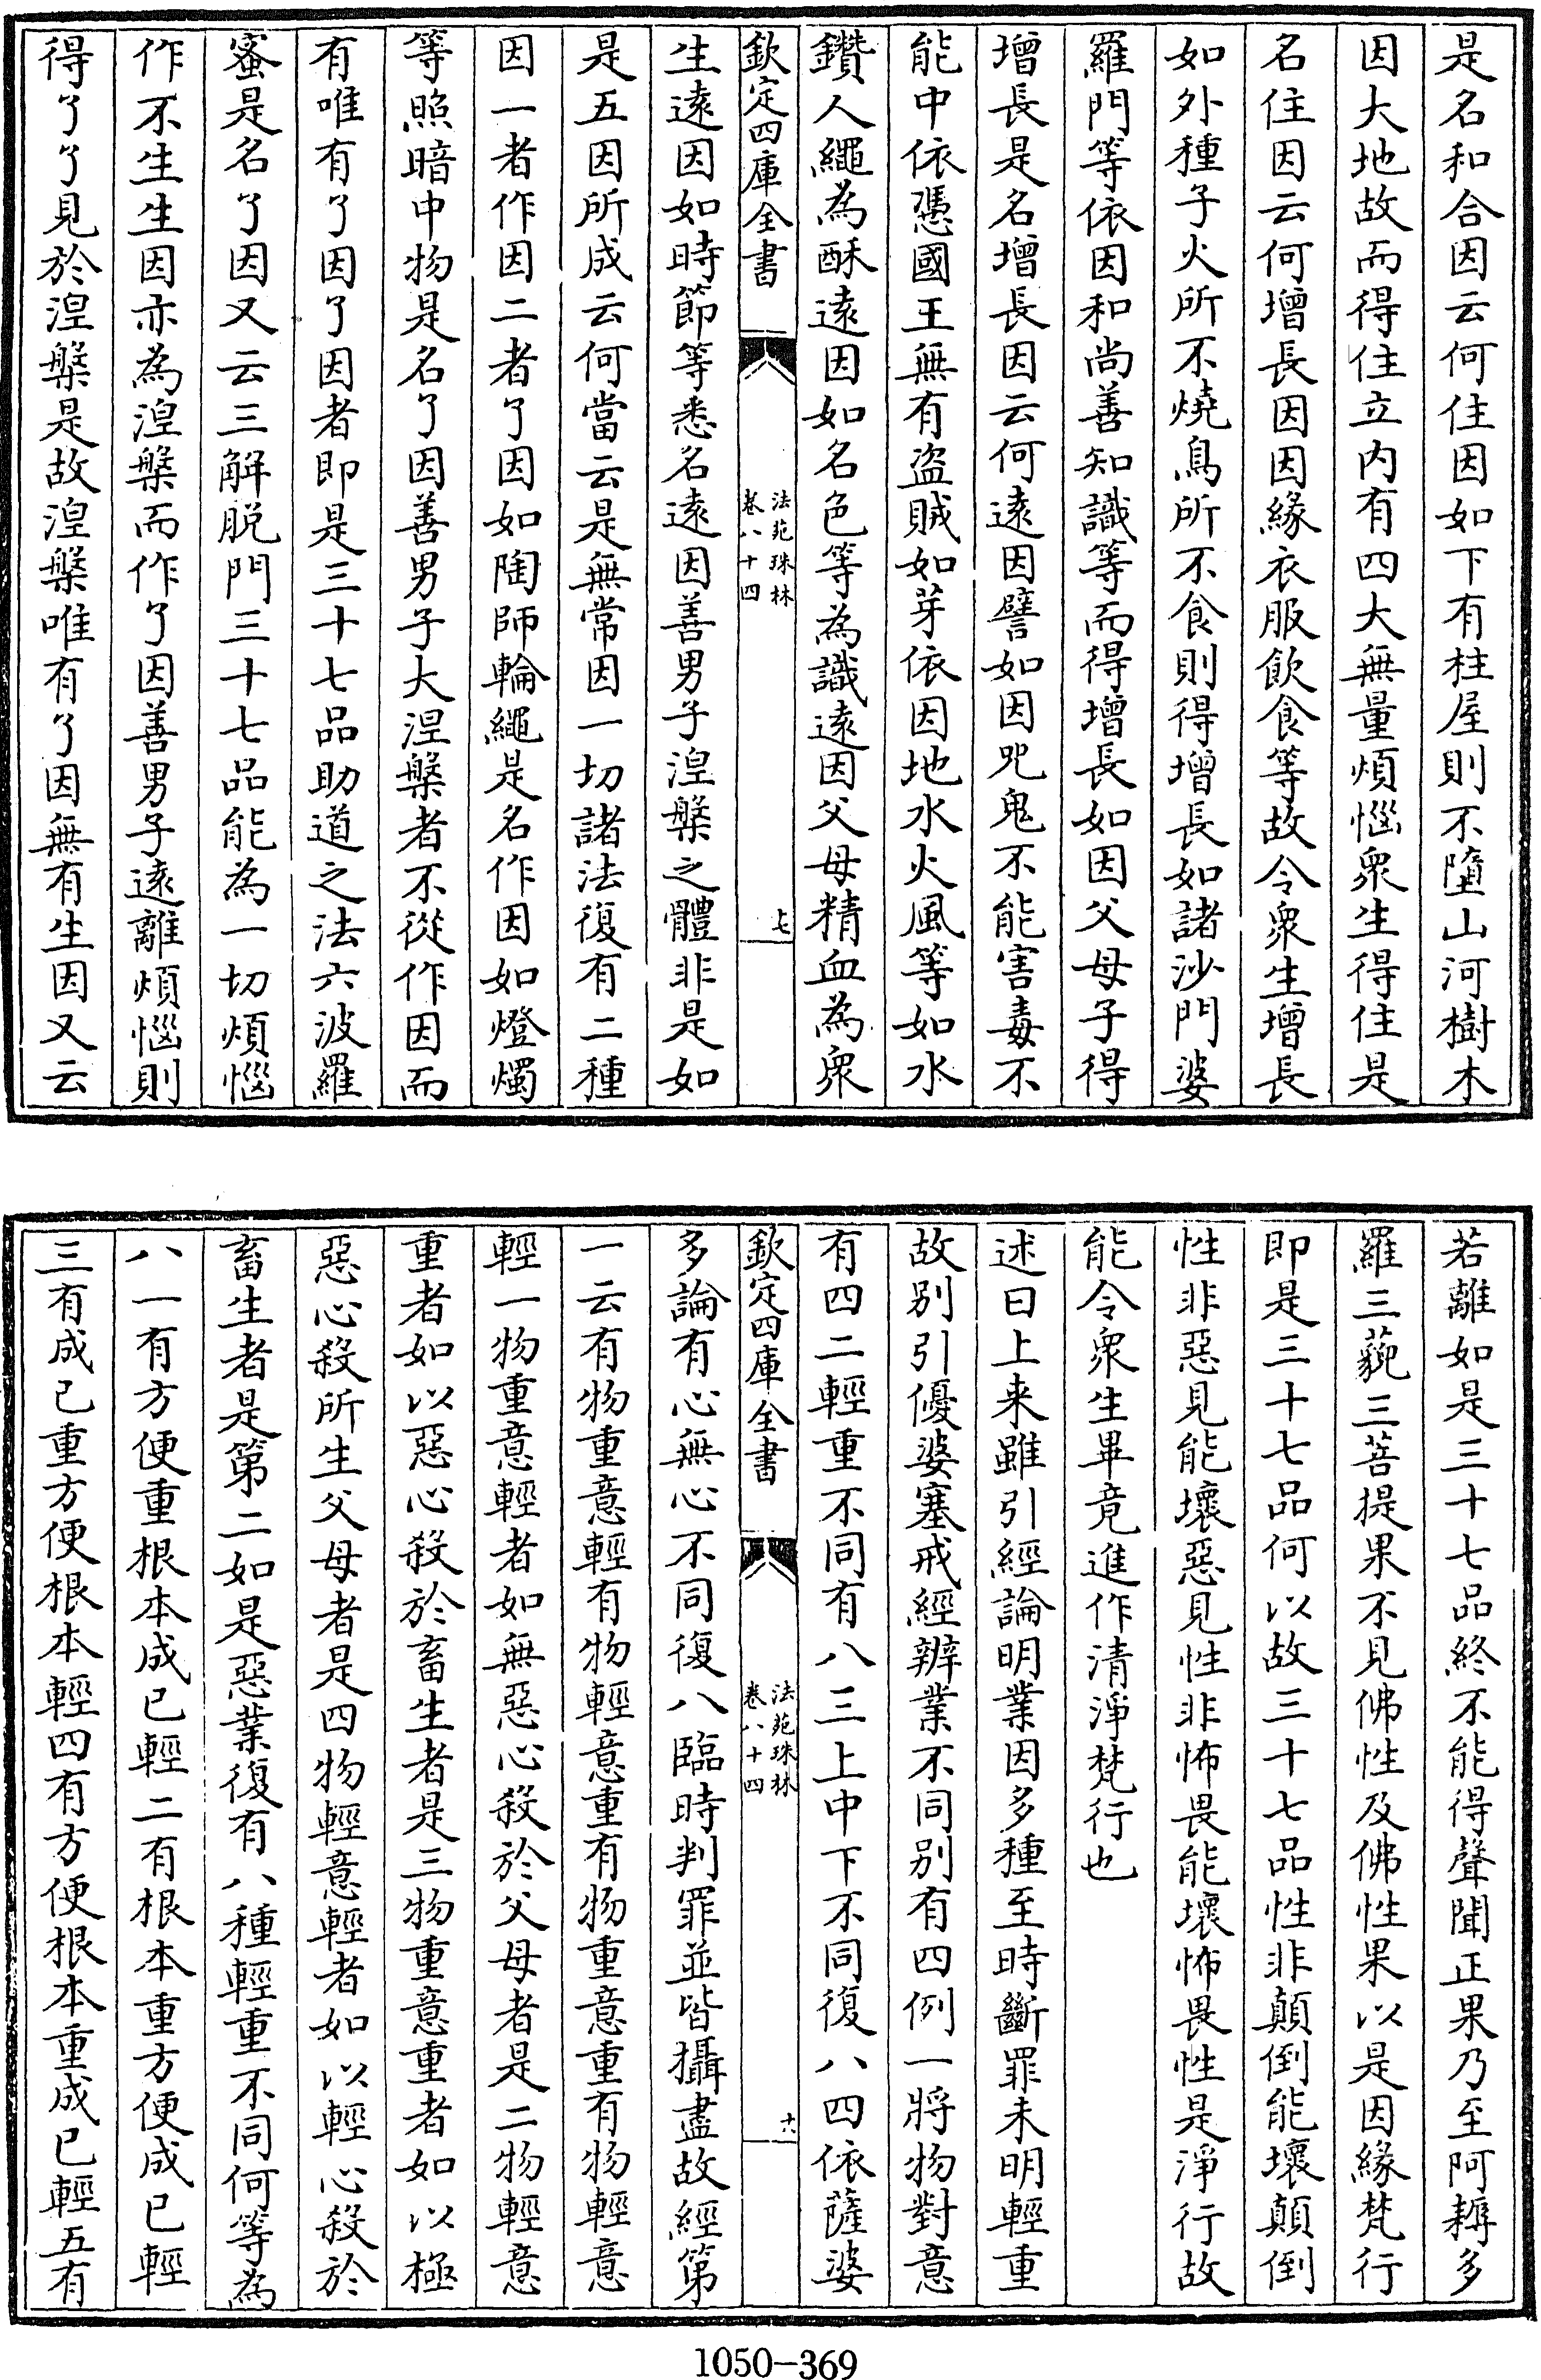 是名和合因云何住因如下有柱屋則不墮山河樹木
因大地故而得住立内有四大無量煩惱衆生得住是
名住因云何增長因因緣衣服飲食等故令衆生增長
如外種子火所不燒鳥所不食則得增長如諸沙門婆
羅門等依因和尚善知識等而得增長如因父母子得
增長是名增長因云何遠因譬如因咒鬼不能害毒不
能中依憑國王無有盗賊如芽依因地水火風等如水
鑽人繩為酥遠因如名色等為識遠因父母精血為衆
欽定四庫全書
法苑珠林
卷八十四
七
生遠因如時節等悉名遠因善男子湼槃之體非是如
是五因所成云何當云是無常因一切諸法復有二種
因一者作因二者了因如陶師輪繩是名作因如燈燭
等照暗中物是名了因善男子大涅槃者不從作因而
有唯有了因了因者即是三十七品助道之法六波羅
蜜是名了因又云三解脱門三十七品能為一切煩惱
作不生生因亦為湼槃而作了因善男子遠離煩惱則
得了了見於湼槃是故湼槃唯有了因無有生因又云
若離如是三十七品終不能得聲聞正果乃至阿耨多
羅三藐三菩提果不見佛性及佛性果以是因緣梵行
即是三十七品何以故三十七品性非顛倒能壞顛倒
性非惡見能壞惡見性非怖畏能壞怖畏性是淨行故
能令衆生畢竟進作清淨梵行也
述曰上来雖引經論明業因多種至時斷罪未明輕重
故别引優婆塞戒經辨業不同别有四例一將物對意
有四二輕重不同有八三上中下不同復八四依薩婆
欽定四庫全書
法苑珠林
卷八十四
十八
多論有心無心不同復八臨時判罪並皆攝盡故經第
一云有物重意輕有物輕意重有物重意重有物輕意
輕一物重意輕者如無惡心殺於父母者是二物輕意
重者如以惡心殺於畜生者是三物重意重者如以極
惡心殺所生父母者是四物輕意輕者如以輕心殺於
畜生者是第二如是惡業復有八種輕重不同何等為
八一有方便重根本成已輕二有根本重方便成已輕
三有成已重方便根本輕四有方便根本重成已輕五有
1050-369